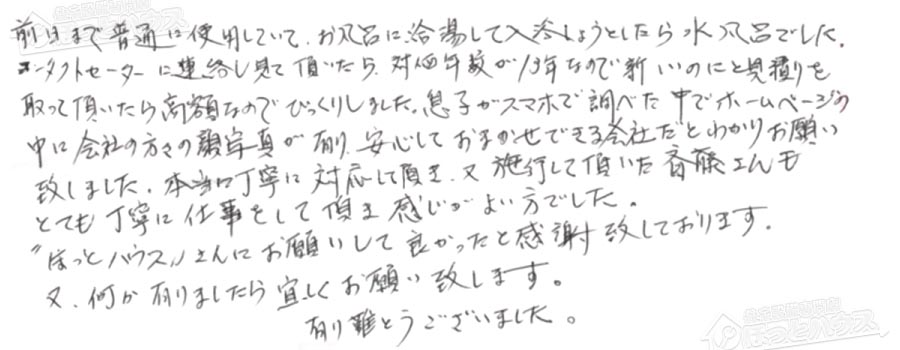 前日まで普通に使用していて、お風呂に給湯して入浴しようとしたら水風呂でした。
コンタクトセーターに連絡し見て頂いたら、対応年数が13年なので新しいのにと見積りを
取って頂いたら高額なのでびっくりしました。息子がスマホで調べた中でホームページの
中に会社の方々の顔写真が有り、安心しておまかせできる会社だとわかりお願い
致しました。本当に丁寧に対応して頂き、又施行して頂いた斉藤さんも
とても丁寧に仕事をして頂き感じがよい方でした。
"ほっとハウス〃さんにお願いして良かったと感謝致しております。
又、何か有りましたら宜しくお願い致します。
有り難とうございました。
ほっとハウス